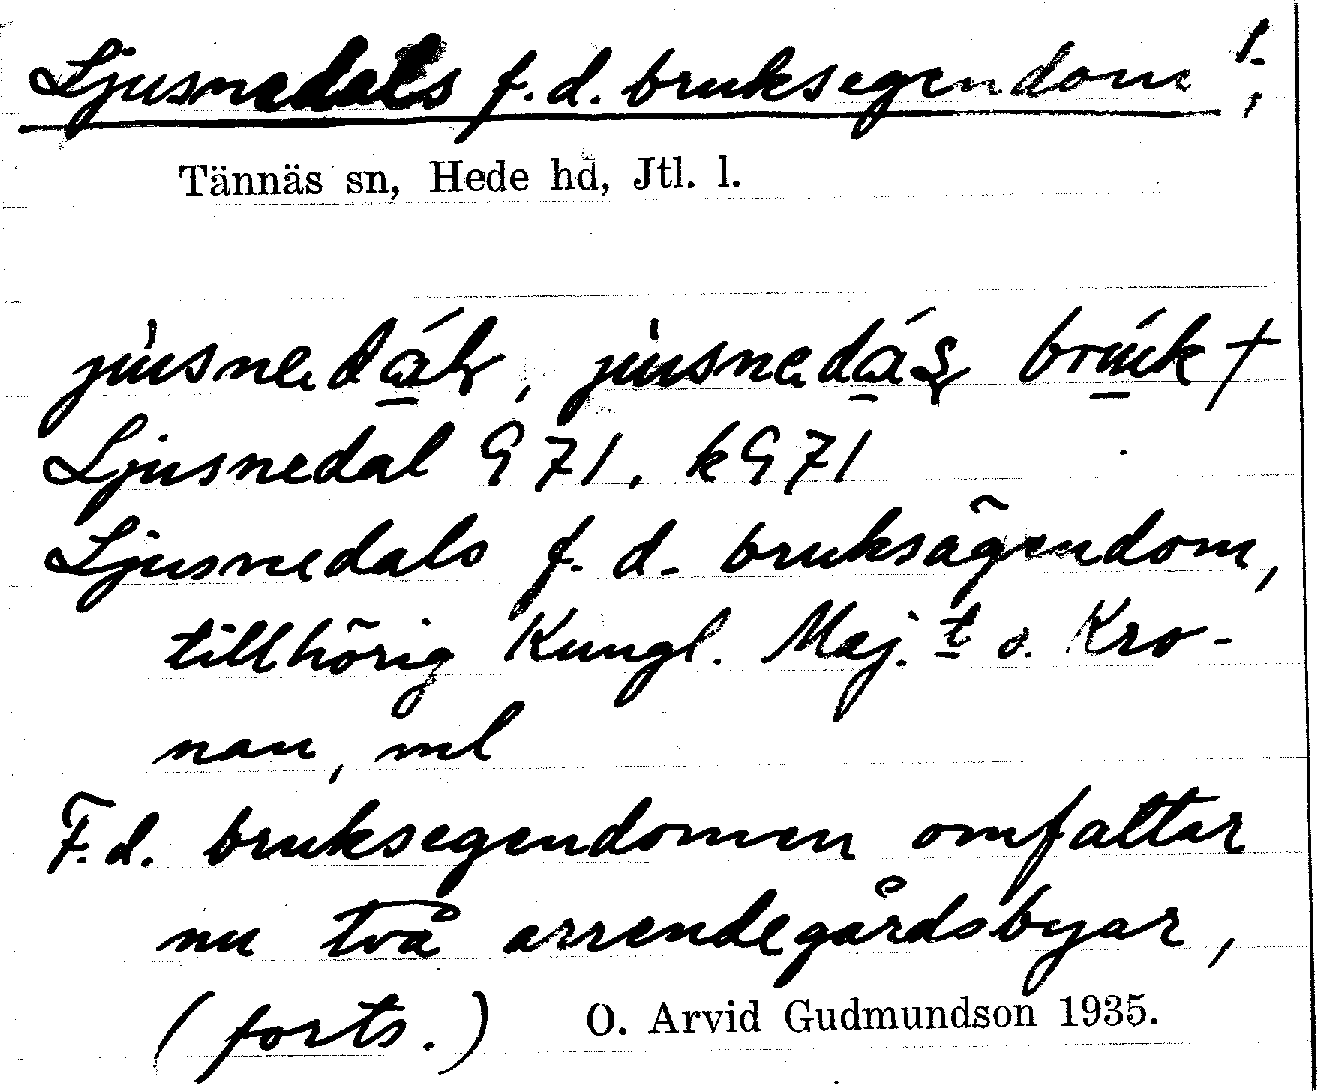 Ljusnedals f.d. bruksegendom 1.
Tännäs sn, Hede hd, Jtl. l.
Ljusnedal G 71, kG 71
Ljusnedals f. d. bruksägendom,
tillhörig Kungl. Maj.t o. Kro-
nan, ml
F.d. bruksegendomen omfattar
nu två arrendegårdsbyar,
(forts.) O. Arvid Gudmundson 1935.